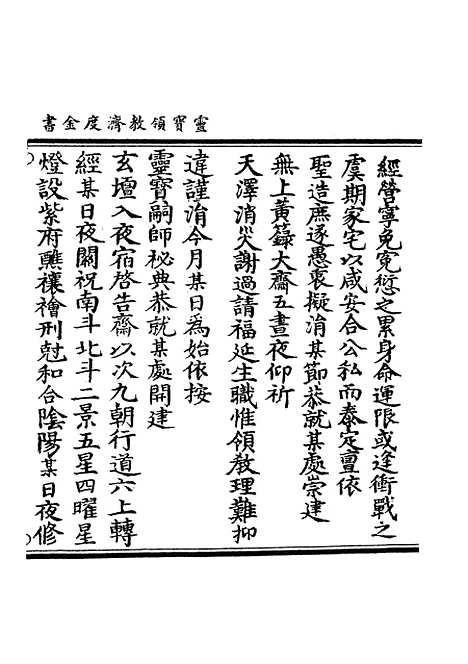 靈寶領教濟度金書
經營寧免寃愆之累身命運限或逢衝戰之
虞期家宅以咸安合公私而泰定亶依
聖造庶遂愚衷擬涓某節恭就某處崇建
無上黃籙大齋五晝夜仰祈
天澤消災謝過請福延生職惟領教理難抑
違謹涓今月某日爲始依按
靈寶嗣師秘典恭就某處開建
玄壇入夜宿啓告齋以次九朝行道六上轉
經某日夜關祝南斗北斗二景五星四曜星
燈設紫府醮禳禬刑尅和合陰陽某日夜修